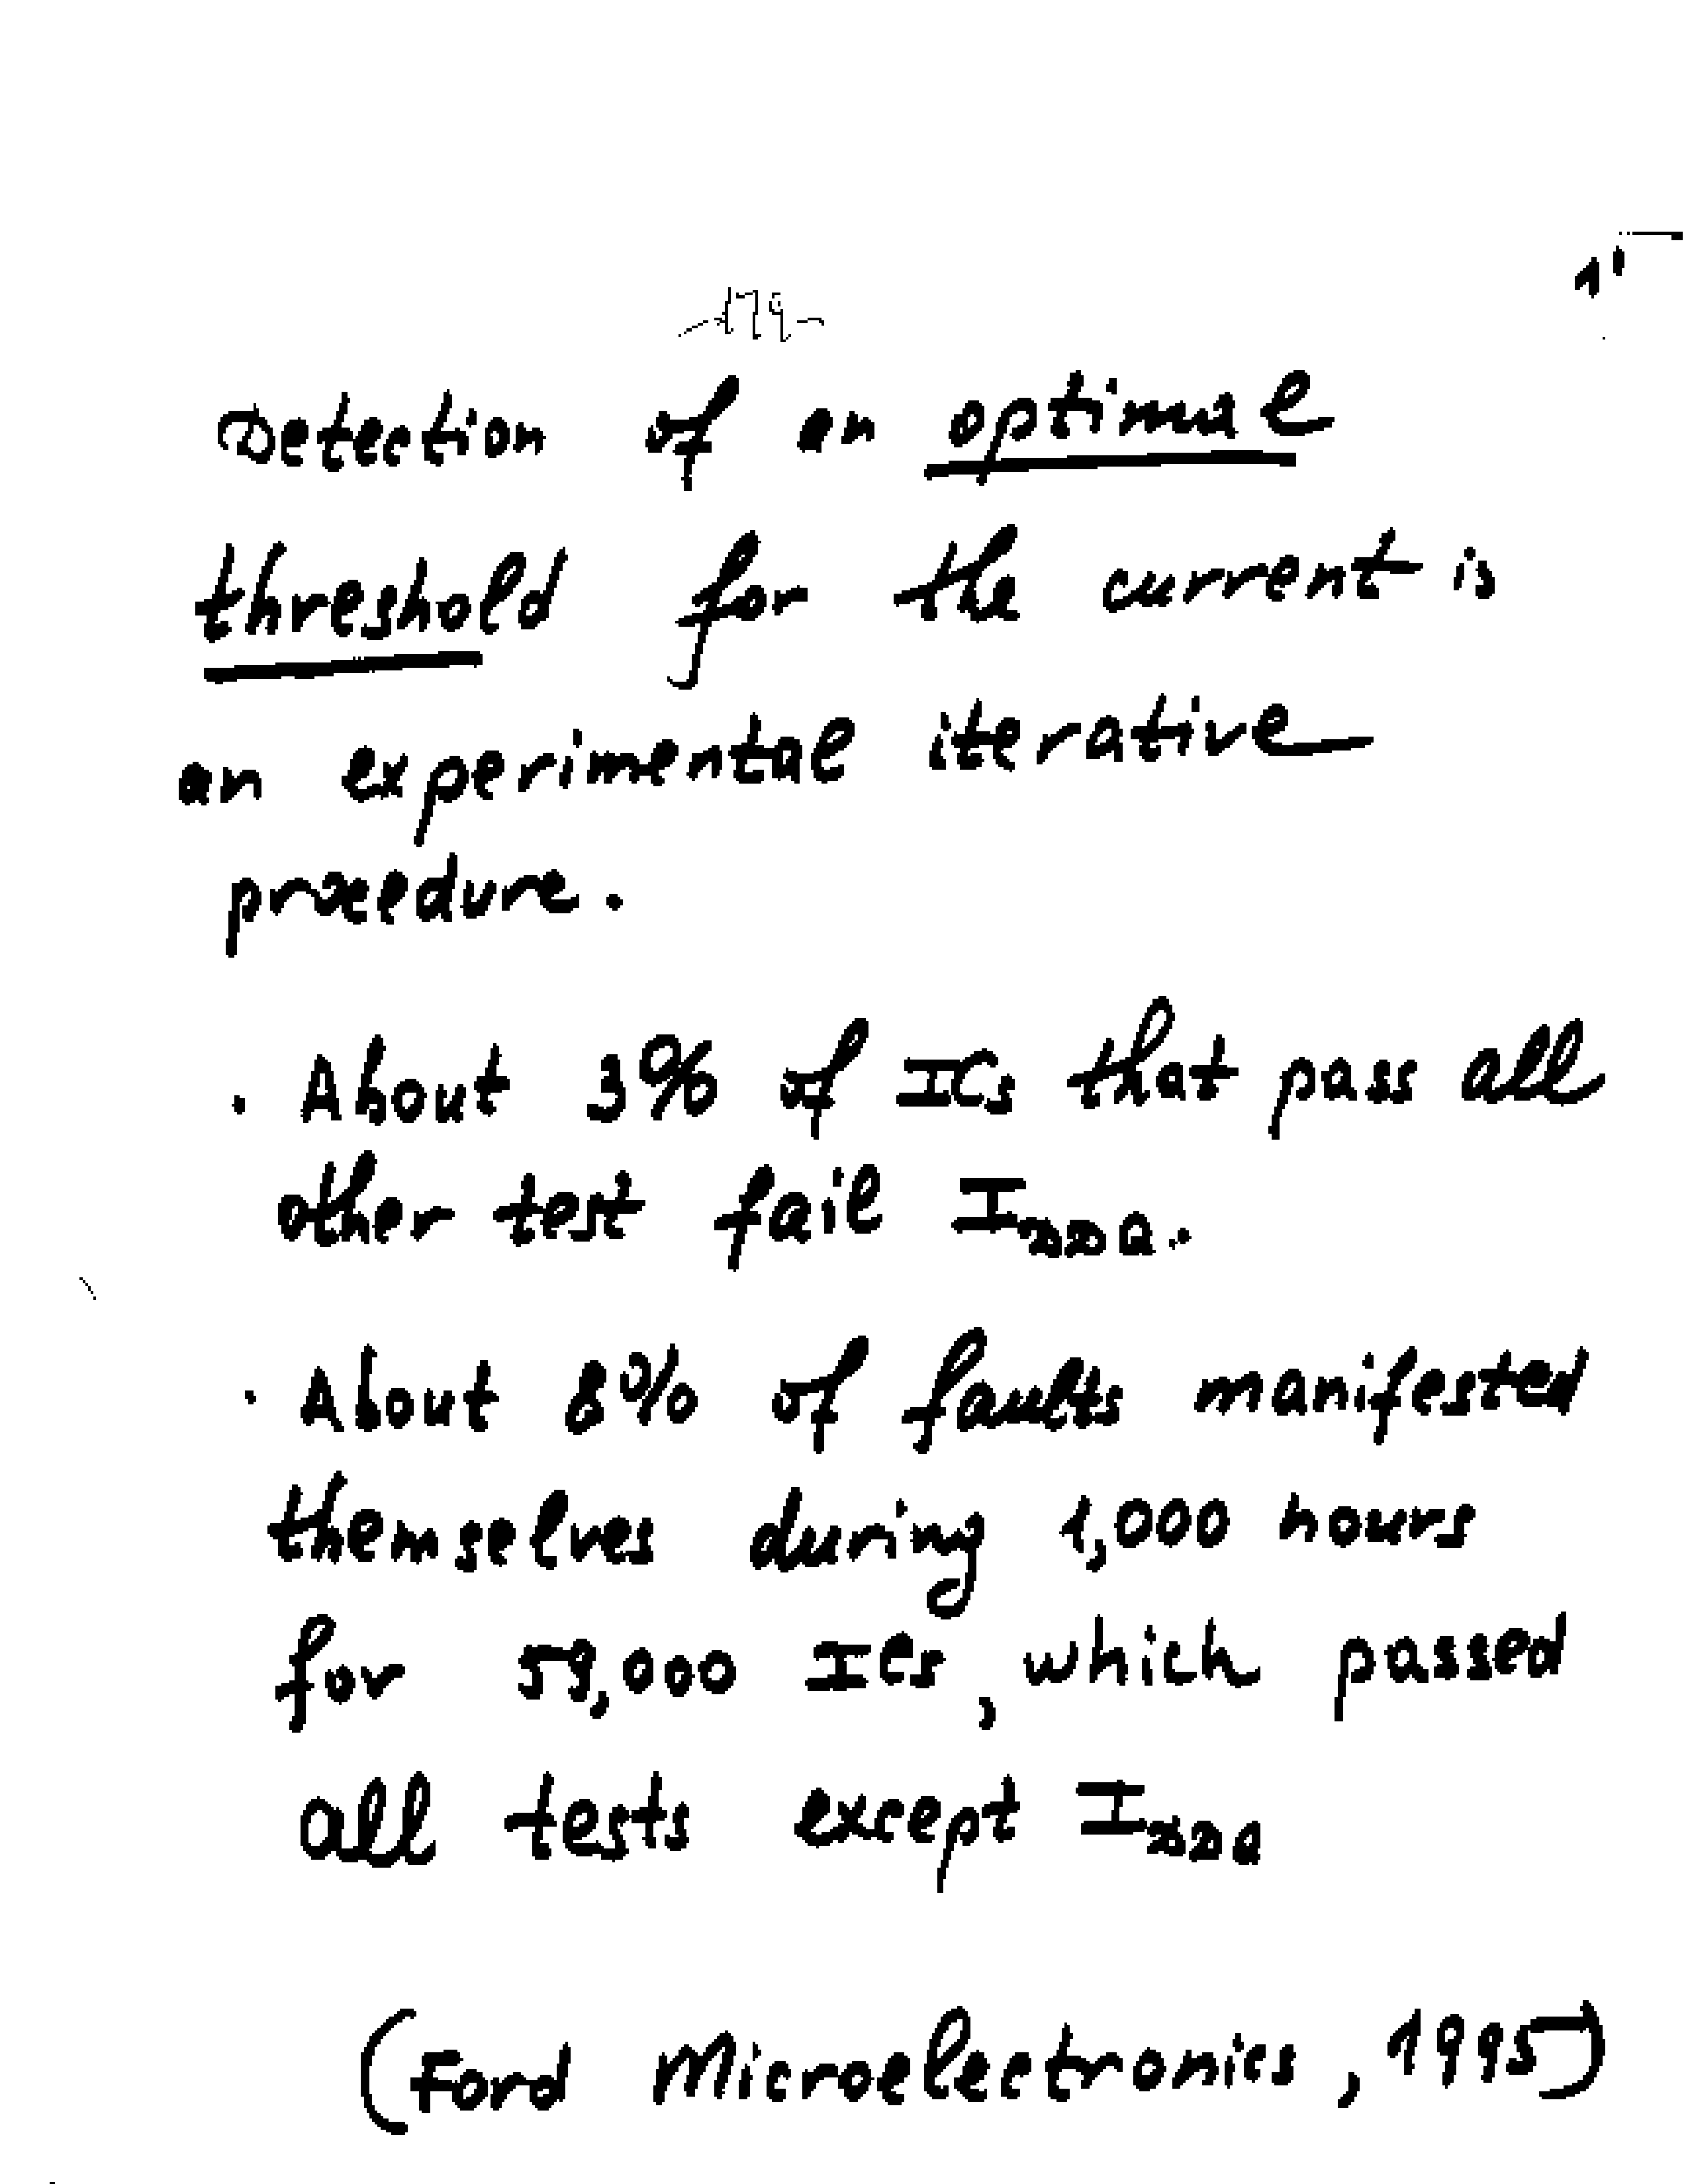 -179-
Detection of an optimal
threshold for the current is
an experimental iterative
procedure.
. About 3% of ICs that pass all
other test fail IDDQ.
. About 8% of faults manifested
themselves during 1,000 hours
for 59,000 ICs, which passed
all tests except IDDQ
(Ford Microelectronics, 1995)